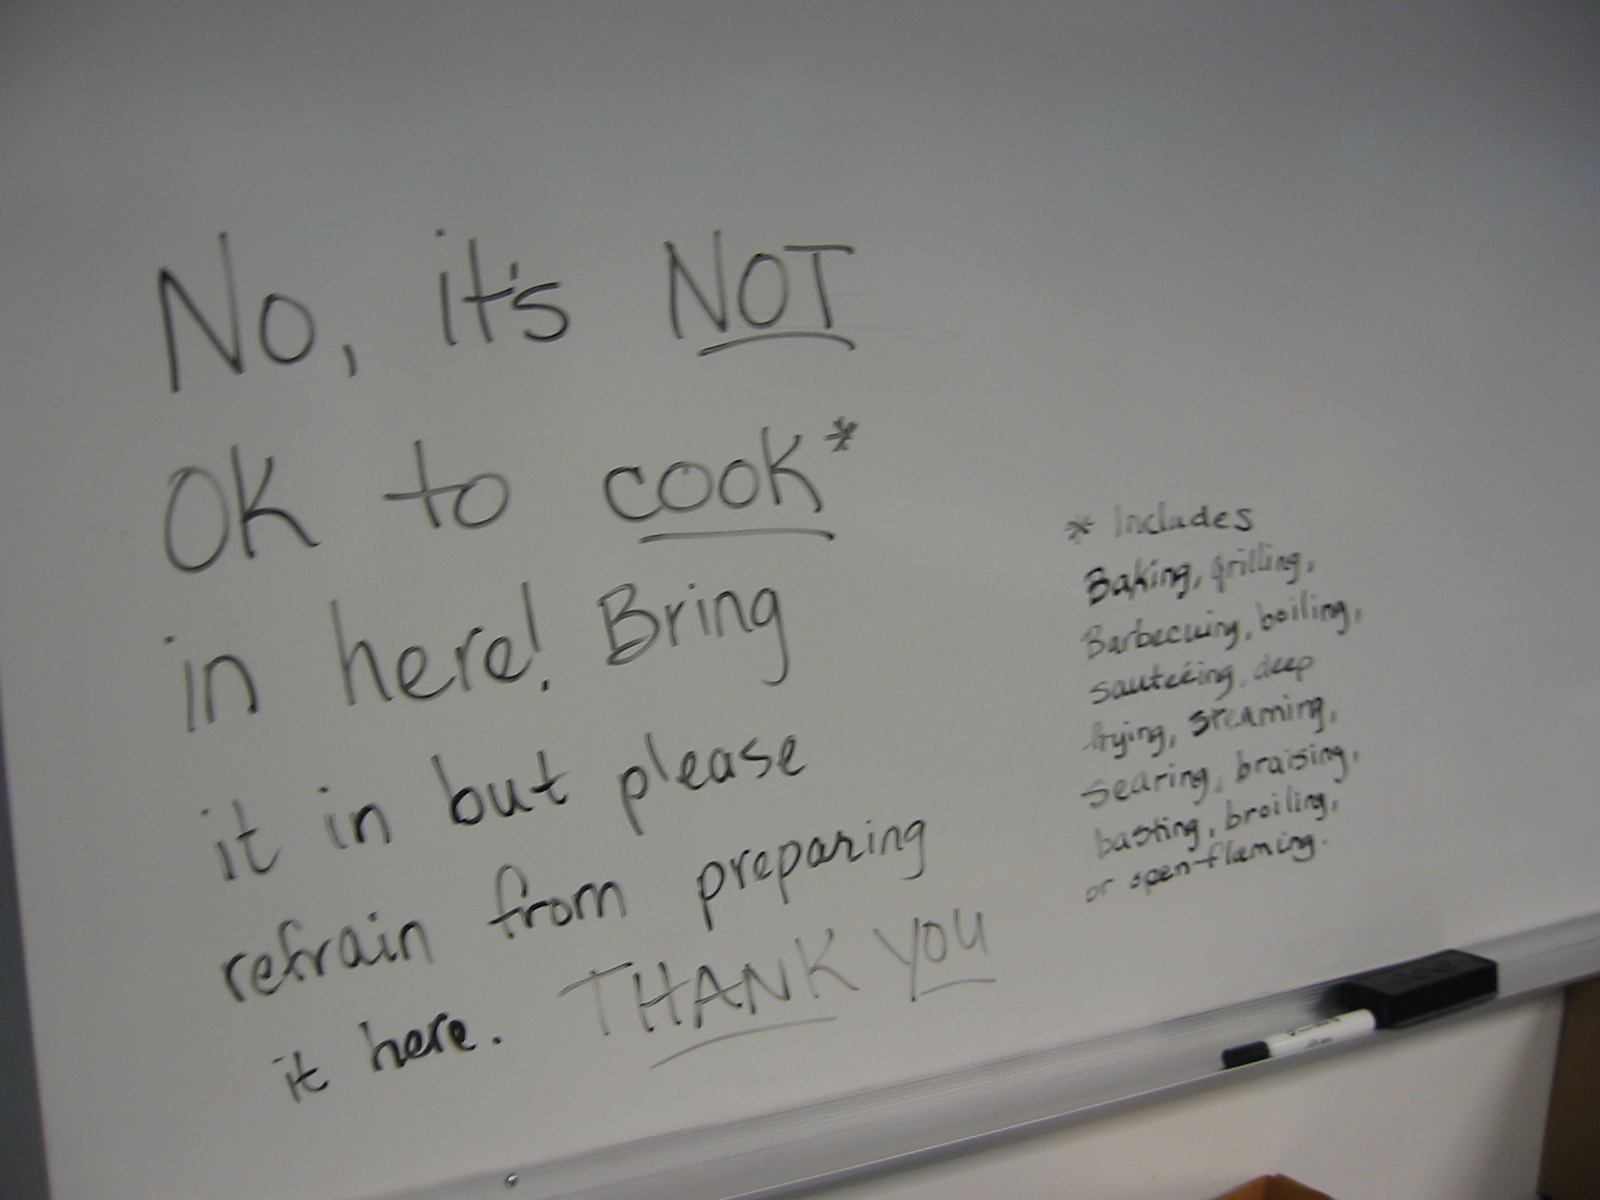 No, it's NOT
OK to cook*
in here! Bring
it in but please
refrain from preparing
it here. THANK YOU
* Includes
Baking, grilling,
Barbecuing, boiling,
sauteéing, deep
frying, steaming,
searing, braising,
basting, broiling,
or open-flaming.